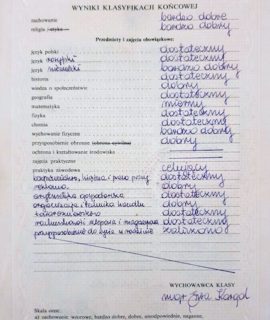 WYNIKI KLASYFIKACJI KOŃCOWEJ
zachowanie bardzo dobre
religia / etyka bardzo dobry
Przedmioty i zajęcia obowiązkowe:
język polski dostateczny
język rosyjski dostateczny
język niemiecki bardzo dobry
historia dobry
wiedza o społeczeństwie dobry
geografia dostateczny
matematyka mierny
fizyka dostateczny
chemia dostateczny
wychowanie fizyczne bardzo dobry
przysposobienie obronne dobry
ochrona i kształtowanie środowiska dostateczny
zajęcia praktyczne
praktyka zawodowa celujący
dobry
reklama dostateczny
dobry
organizacja i technika handlu dostateczny
towaroznawstwo dobry
dostateczny
przysposobienie do życia w rodzinie
WYCHOWAWCA KLASY
mgr
Skala ocen:
a) zachowanie: wzorowe, bardzo dobre, dobre, nieodpowiednie, naganne,